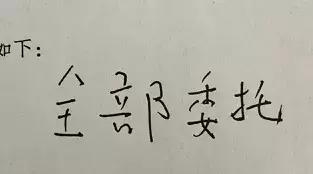 如下：
全部委托